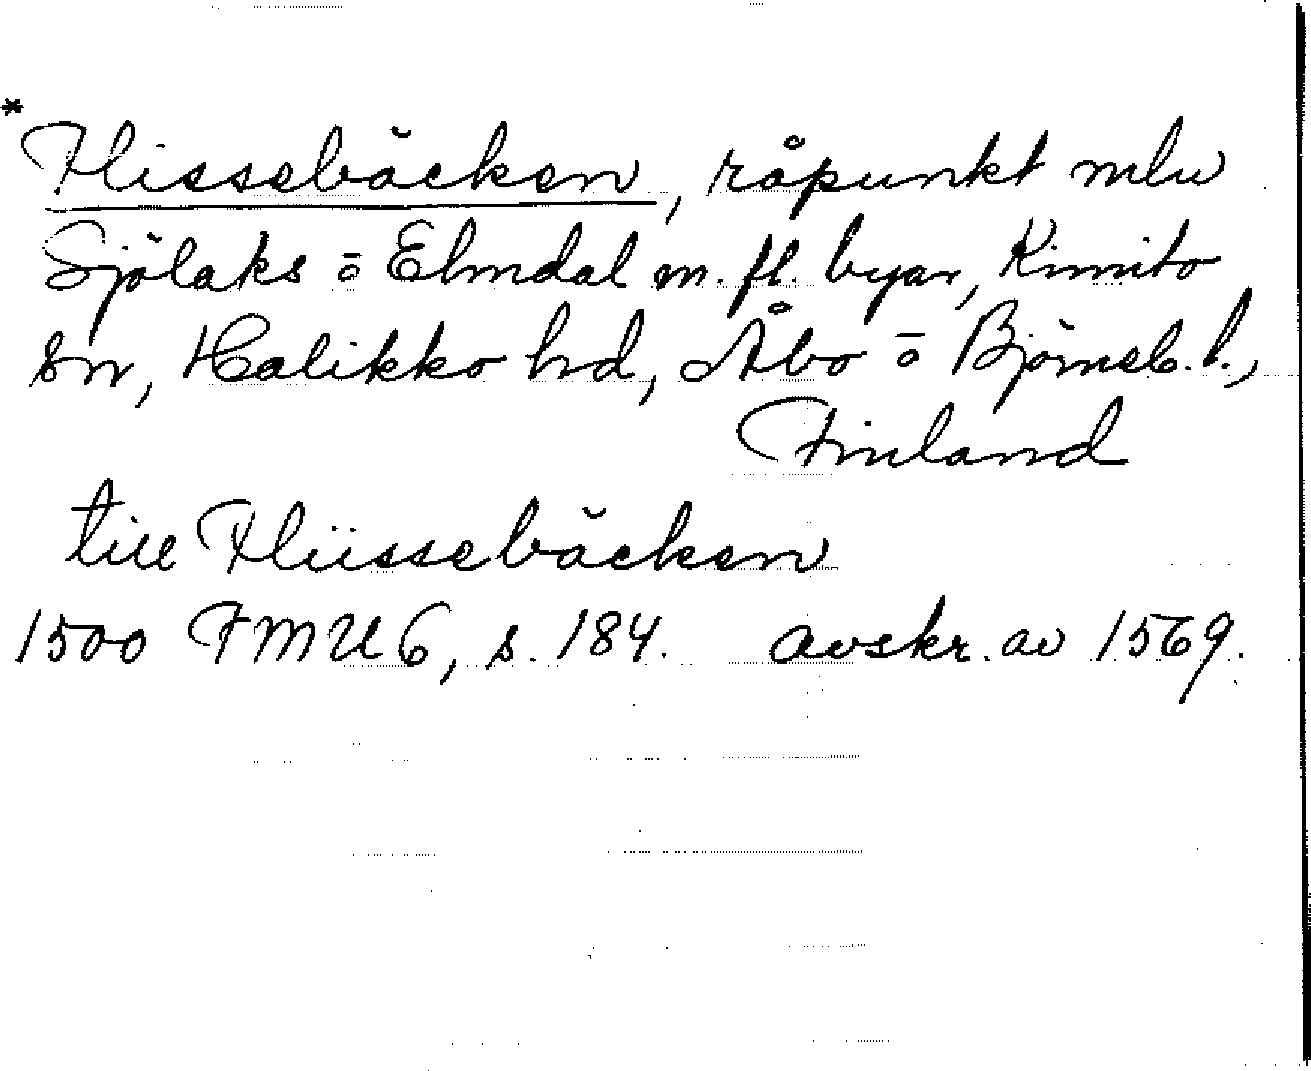 *
Flissebäcken, råpunkt mlu
Sjölaks o Elmdal m. fl. byar, Kimito
sn, Halikko hd, Åbo o Björneb. l.,
Finland
till Fliissebäcken
1500 FMU 6, s. 184. avskr. av 1569.